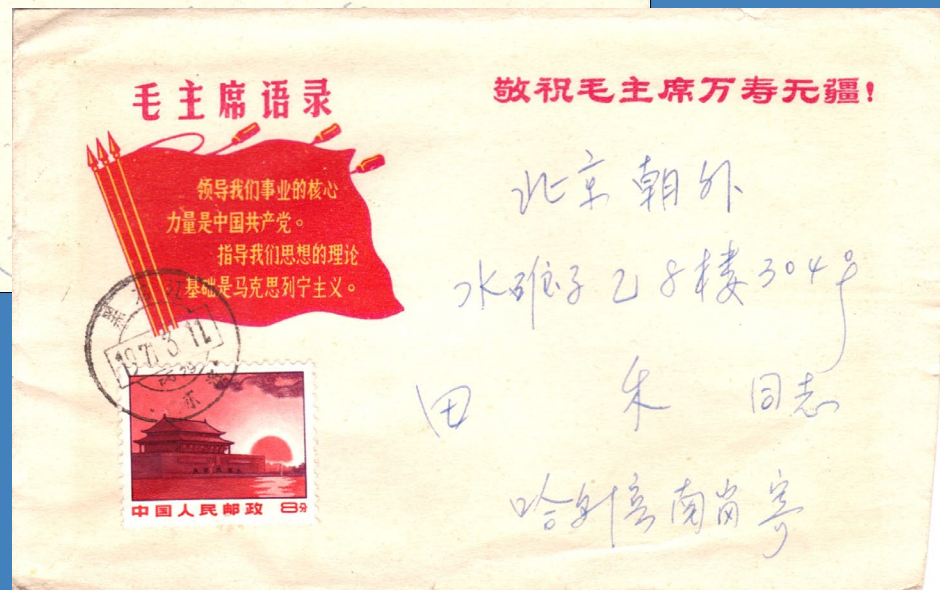 毛主席语录
敬祝毛主席万寿无疆!
领导我们事业的核心
力量是中国共产党。
指导我们思想的理论
基础是马克思列宁主义。
北京朝外
水碓子乙8楼304号
田 禾 同志
哈尔滨南岗寄
黑 龙 江
1971.3.11
中国人民邮政 8分